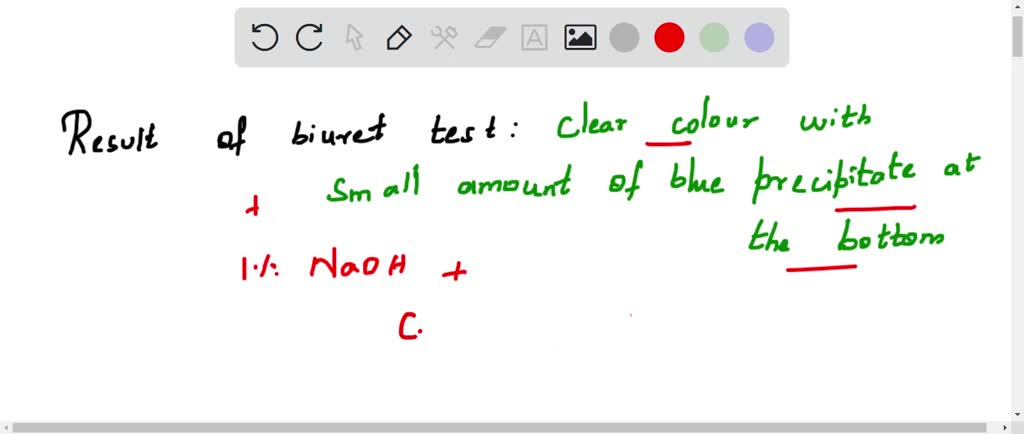 Result of biuret test: Clear colour with
small amount of blue precipitate at
the bottom
+
1% NaOH +
C.